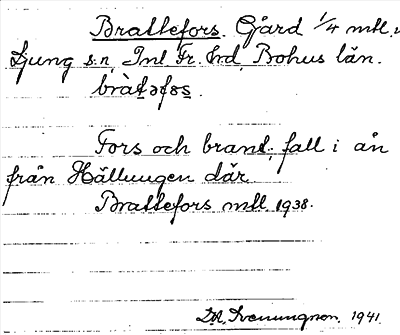 Brattefors. Gård 1/4 mtl.
Ljung s:n, Inl. Fr. hd, Bohus län.
bràtəfɷs.
Fors och brant fall i ån
från Hällungen där.
Brattefors mtl. 1938.
1941.